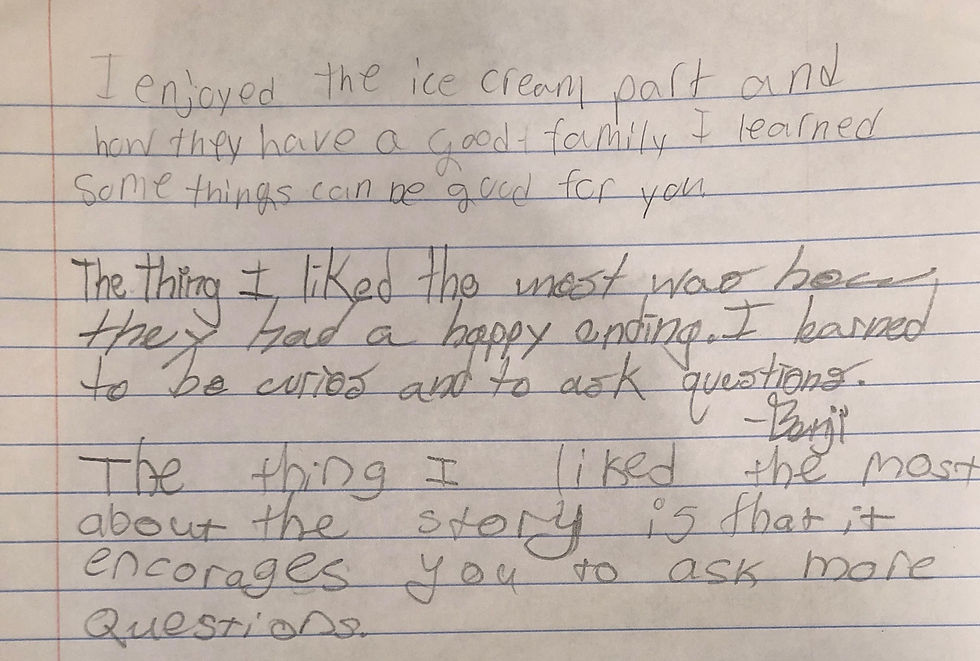 I enjoyed the ice cream part and
how they have a good family I learned
some things can be good for you
The thing I liked the most was how
they had a happy ending. I learned
to be curios and to ask questions.
-Benji
The thing I liked the most
about the story is that it
encorages you to ask more
questions.